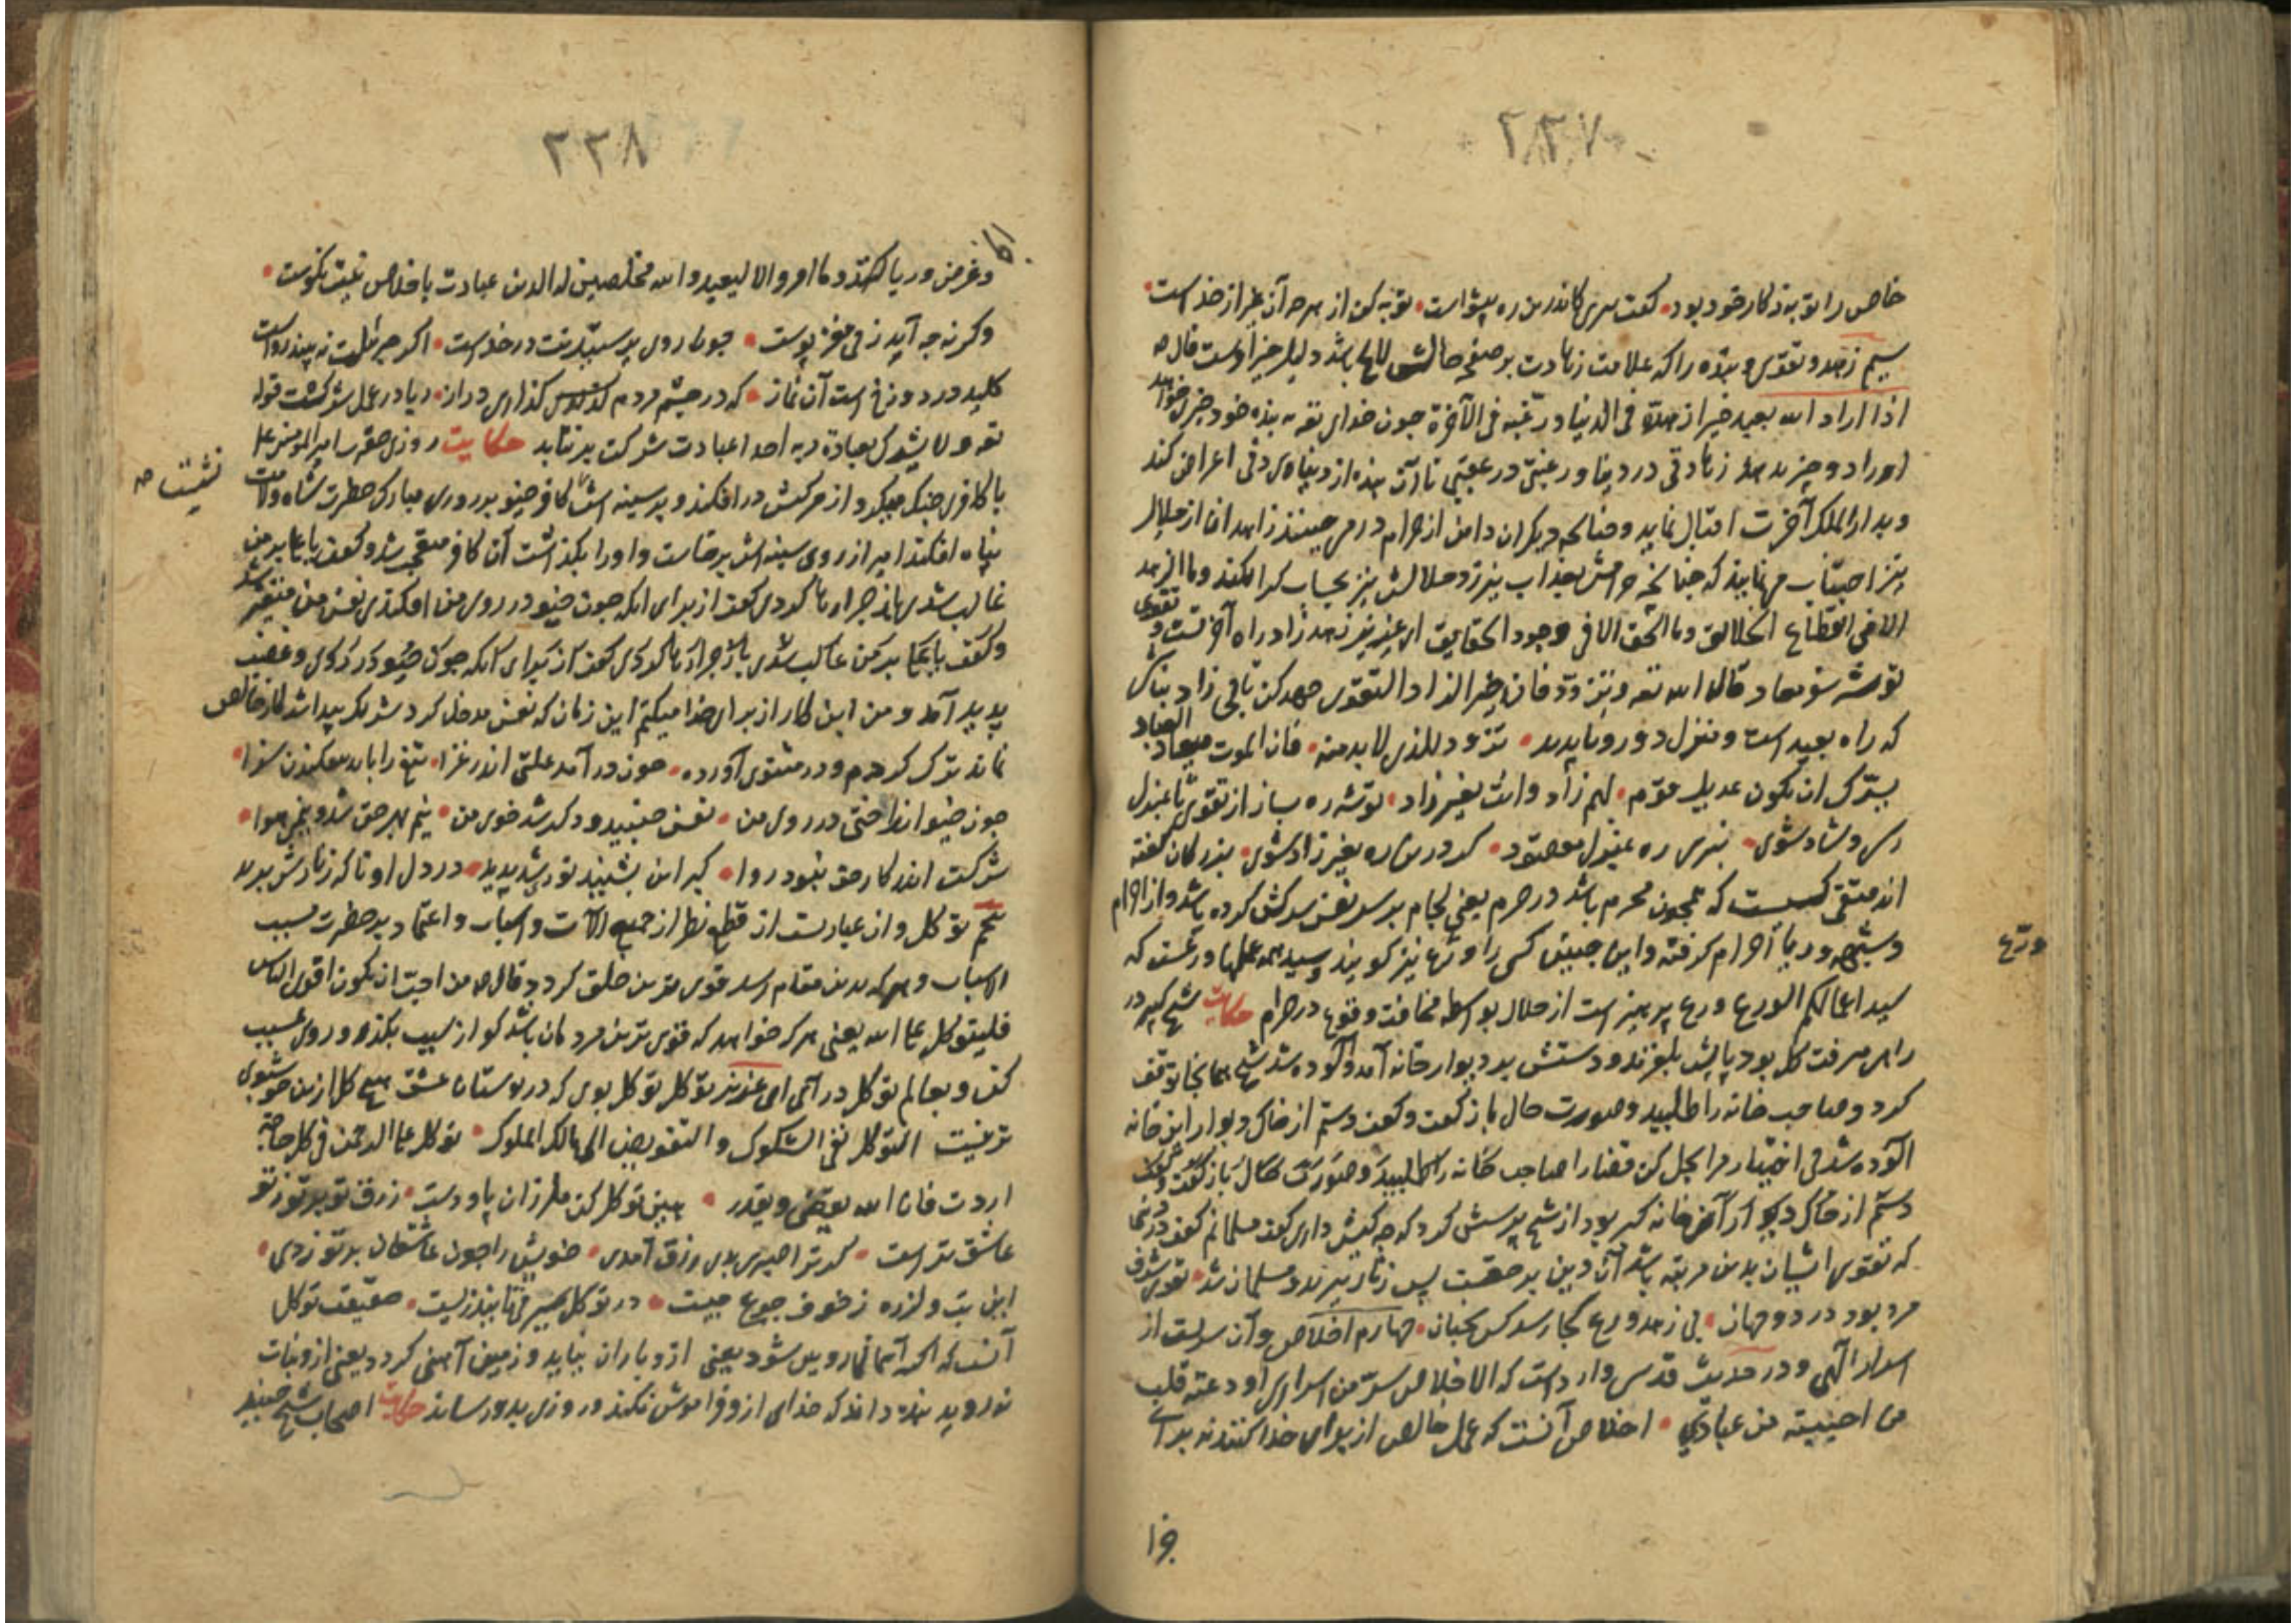 ۲۲۷
خاص را توبه ز کار خود بود کفت سری کاندرین ره پیشواست توبه کن از هرچه آن غیر از خداست
سیم زهد و تقوی و بنده را که علامت زهادت بر صفحه حالش لایح باشد دلیل خیر اوست قال
اذا اراد الله بعبد خیرا زهده فی الدنیا و رغبه فی الآخرة چون خدای تعه به بنده خود خیری خواهد
اورا دو چیز بدهد زهادتی در دنیا و رغبتی در عقبی تا آن بنده از دنیای دنی اعراض کند
و بدار الملک آخرت اقبال نماید و چنانچه دیکران دامن از حرام در می چینند زاهدان از حلال
نیز اجتناب می نمایند که چنانچه حرامش بعذاب نیرزد حلالش نیز بحساب کرا نکند و ما الزهد
الا فی انقطاع الخلایق و ما الحق الا فی وجود الحقایق ای عزیز زهد زاد راه آخرتست و تقوی
توشه سفر معاد قال الله تعه و تزودوا فان خیر الزاد التقوی جهد کن تا بی زاد نباشی
که راه بعید است و منزل دور و ناپدید تزود للذی لابد منه فان الموت میعاد العباد
یسرک ان تکون عدیل قوم لهم زاد و انت بغیر زاد توشه ره ساز از تقوی تا بمنزل
رسی و شاد شوی نبری ره بمنزل مقصود کر درین ره بغیر زاد شوی بزرکان کفته
اند متقی کسیست که همچون محرم باشد در حرم یعنی لجام بر سر نفس سرکش کرده باشد و از حرام
و شبهه و ریا احرام کرفته و این چنین کسی را ورع نیز کویند و سید همه عملها ورعست که
ورع
سید اعمالکم الورع ورع پرهیز است از حلال بواسطه مخافت وقوع در حرام حکایت شیخ کبیر در
راهی میرفت کل بود پایش بلغزید و دستش بدیوار خانه آمد و آلوده شد شیخ همانجا توقف
کرد و صاحب خانه را طلبید و صورت حال باز کفت و کفت دستم از خاک دیوار این خانه
آلوده شد بی اختیار مرا بحل کن قضا را صاحب خانه را طلبید و صورت حال باز کفت
دستم از خاک دیوار آن خانه کبر بود از شیخ پرسش کرد که چه کیش داری کفت مسلمانم کفت
که تقوی ایشان بدین مرتبه باشد آن دین بر حقست پس زنار ببرید و مسلمان شد تقوی شرف
مرد بود در دو جهان بی زهد و ورع کجا رسد کس بجنان چهارم اخلاص و آن سریست از
اسرار الهی و در حدیث قدسی وارد است که الاخلاص سر من اسراری اودعته قلب
من احببته من عبادی اخلاص آنست که عمل خالص از برای خدا کنند نه برای
۲۲۸
و غرض و ریا کنند و ما امروا الا لیعبدوا الله مخلصین له الدین عبادت باخلاص نیت نکوست
وکرنه چه آید ز بی مغز پوست چو روی پرستیدنت در خداست اکر جبرئیلت نه بیند رواست
کلید در دوزخ است آن نماز که در چشم مردم کذاری دراز ریا در عمل شرکست قوله
تعه و لا یشرک بعبادة ربه احدا عبادت شرکت برنتابد حکایت روزی حضرت امیر المؤمنین علی
با کافری جنک میکرد از مرکبش در افکند و بر سینه اش نشست کافر خیو بر روی مبارک حضرت شاه ولایت
پناه افکند امیر از روی سینه اش برخاست و اورا بکذاشت آن کافر متعجب شد و کفت یا علی بر من
غالب شدی باز چرا رها کردی کفت از برای آنکه چون خیو در روی من افکندی نفس من متغیر شد
و کفت یا علی بر من غالب شدی باز چرا رها کردی کفت از برای آنکه چون خیو در روی و غضب
پدید آمد و من این کار از برای خدا میکنم این زمان که نفس مدخل کرد شریک پیدا شد کار خالص
نماند ترک کردم و در مثنوی آورده چون در آمد علتی اندر غزا تیغ را باید میکندن سزا
چون خیو انداختی در روی من نفس جنبید و دکر شد خوی من نیم بهر حق شد و نیمی هوا
شرکت اندر کار حق نبود روا کبر این بشنید نوری شد پدید در دل او تا که زنارش برید
پنجم توکل و آن عبارتست از قطع نظر از جمیع آلات و اسباب و اعتماد بر حضرت مسبب
الاسباب و هر که بدین مقام رسد قوی ترین خلق کردد قال من احب ان یکون اقوی الناس
فلیتوکل علی الله یعنی هر که خواهد که قوی ترین مردمان باشد کو از سبب بکذر و روی بمسبب
کن و بعالم توکل درآی ای عزیز توکل توکل بوی که در بوستان عشق هیچ کل ازین خوشبوی
تر نیست التوکل نفی الشکوک و التفویض الی مالک الملوک توکل علی الرحمن فی کل حاجة
اردت فان الله یقضی و یقدر هین توکل کن ملرزان پا و دست رزق تو بر تو ز تو
عاشق تر است کر ترا صبری بدی رزق آمدی خویش را چون عاشقان بر تو زدی
این تب و لرزه ز خوف جوع چیست در توکل سیر می تانید زیست حقیقت توکل
آنست که اکر آسمان رویین شود یعنی ازو باران نیاید و زمین آهنی کردد یعنی ازو نبات
نروید بنده داند که خدای ازو فراموش نکند و روزی بدو رساند حکایت اصحاب شیخ جنید